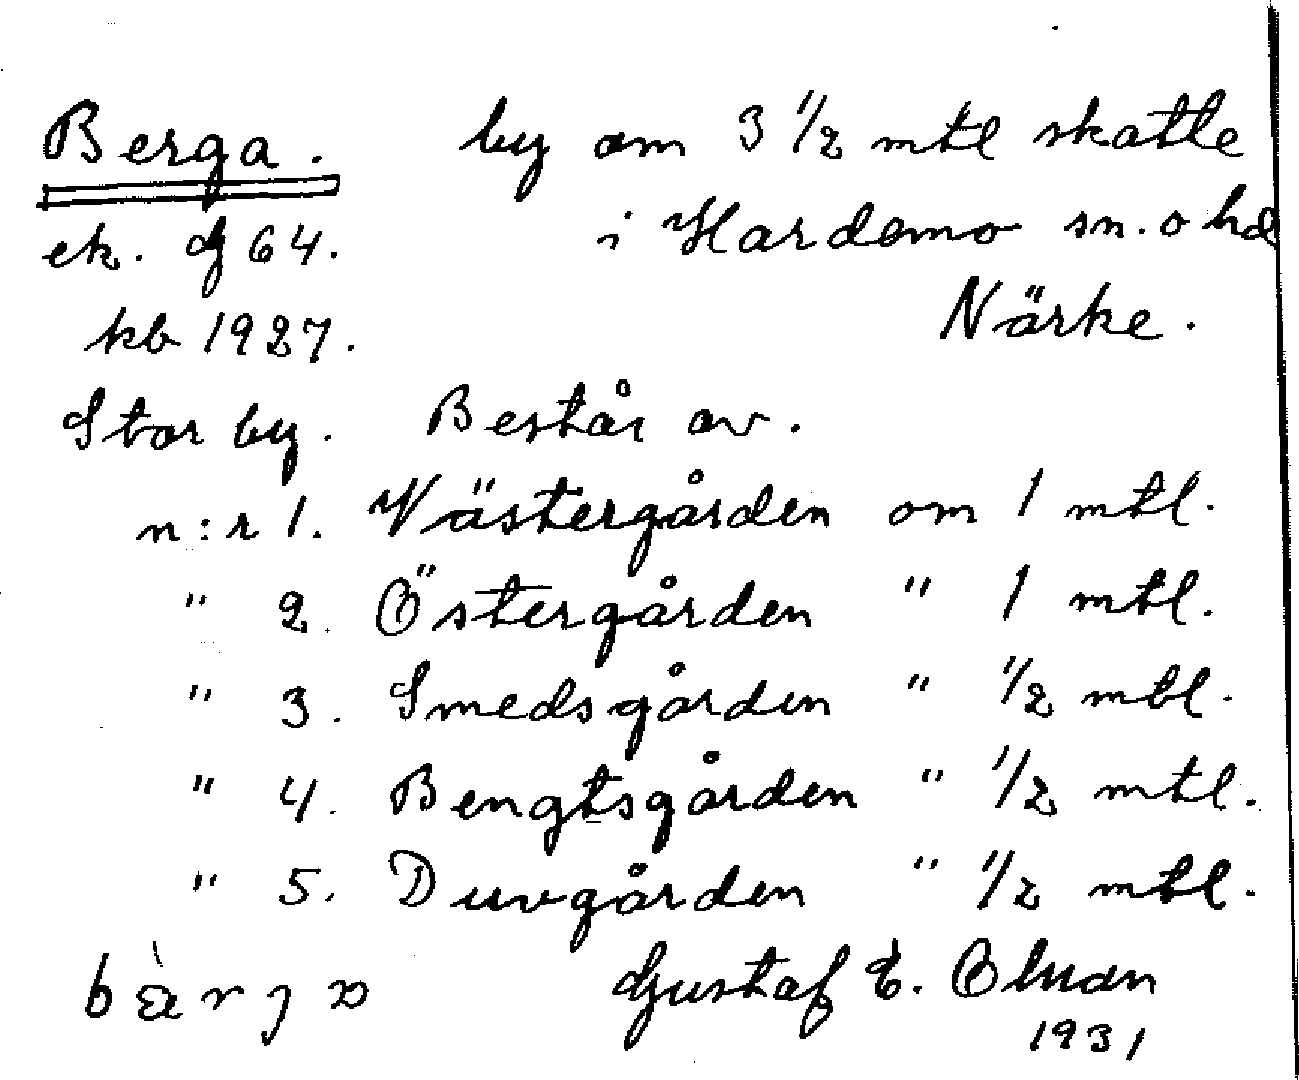 Berga. by om 3 1/2 mtl skatte
ek. df 64. i Hardemo sn. o hd
kb 1927. Närke.
Stor by. Består av.
n:r 1. Västergården om 1 mtl.
" 2. Östergården " 1 mtl.
" 3. Smedsgården " 1/2 mtl.
" 4. Bengtsgården " 1/2 mtl.
" 5. Duvgården " 1/2 mtl.
Gustaf E.
1931